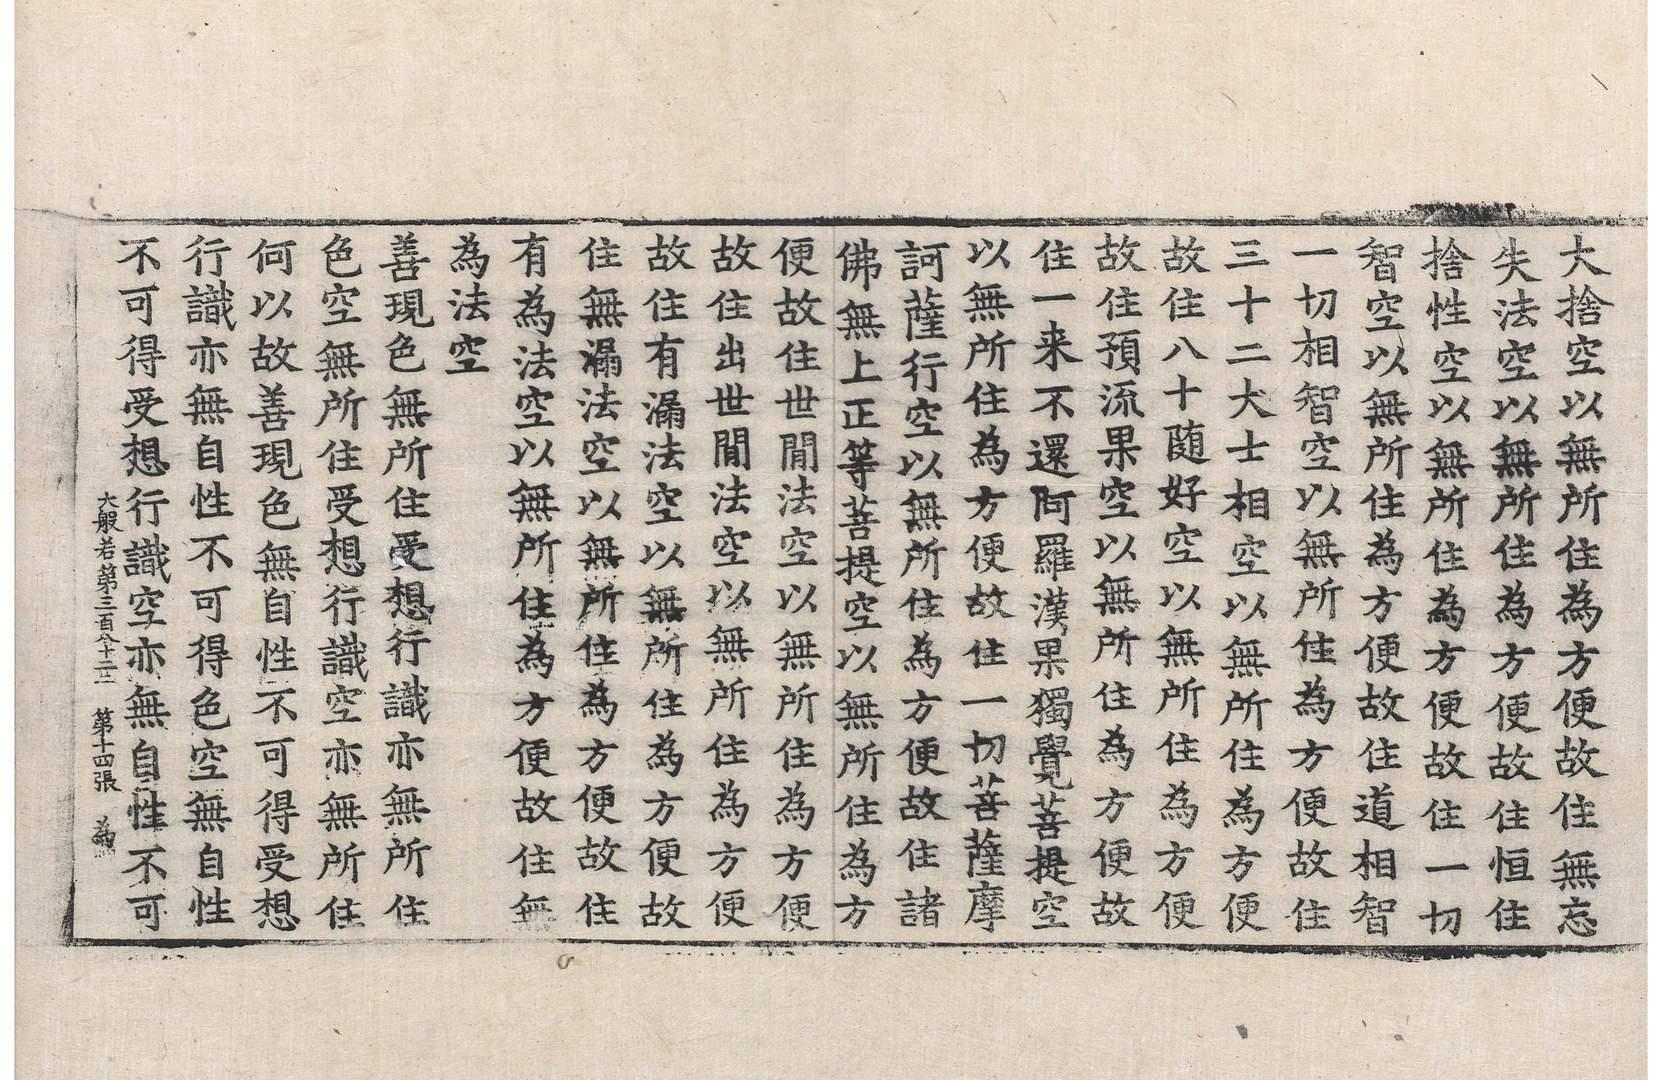 大捨空以無所住為方便故住無忘
失法空以無所住為方便故住恒住
捨性空以無所住為方便故住一切
智空以無所住為方便故住道相智
一切相智空以無所住為方便故住
三十二大士相空以無所住為方便
故住八十随好空以無所住為方便
故住預流果空以無所住為方便故
住一来不還阿羅漢果獨覺菩提空
以無所住為方便故住一切菩薩摩
訶薩行空以無所住為方便故住諸
佛無上正等菩提空以無所住為方
便故住世閒法空以無所住為方便
故住出世閒法空以無所住為方便
故住有漏法空以無所住為方便故
住無漏法空以無所住為方便故住
有為法空以無所住為方便故住無
為法空
善現色無所住受想行識亦無所住
色空無所住受想行識空亦無所住
何以故善現色無自性不可得受想
行識亦無自性不可得色空無自性
不可得受想行識空亦無自性不可
大般若第三百八十二 第十四張 為